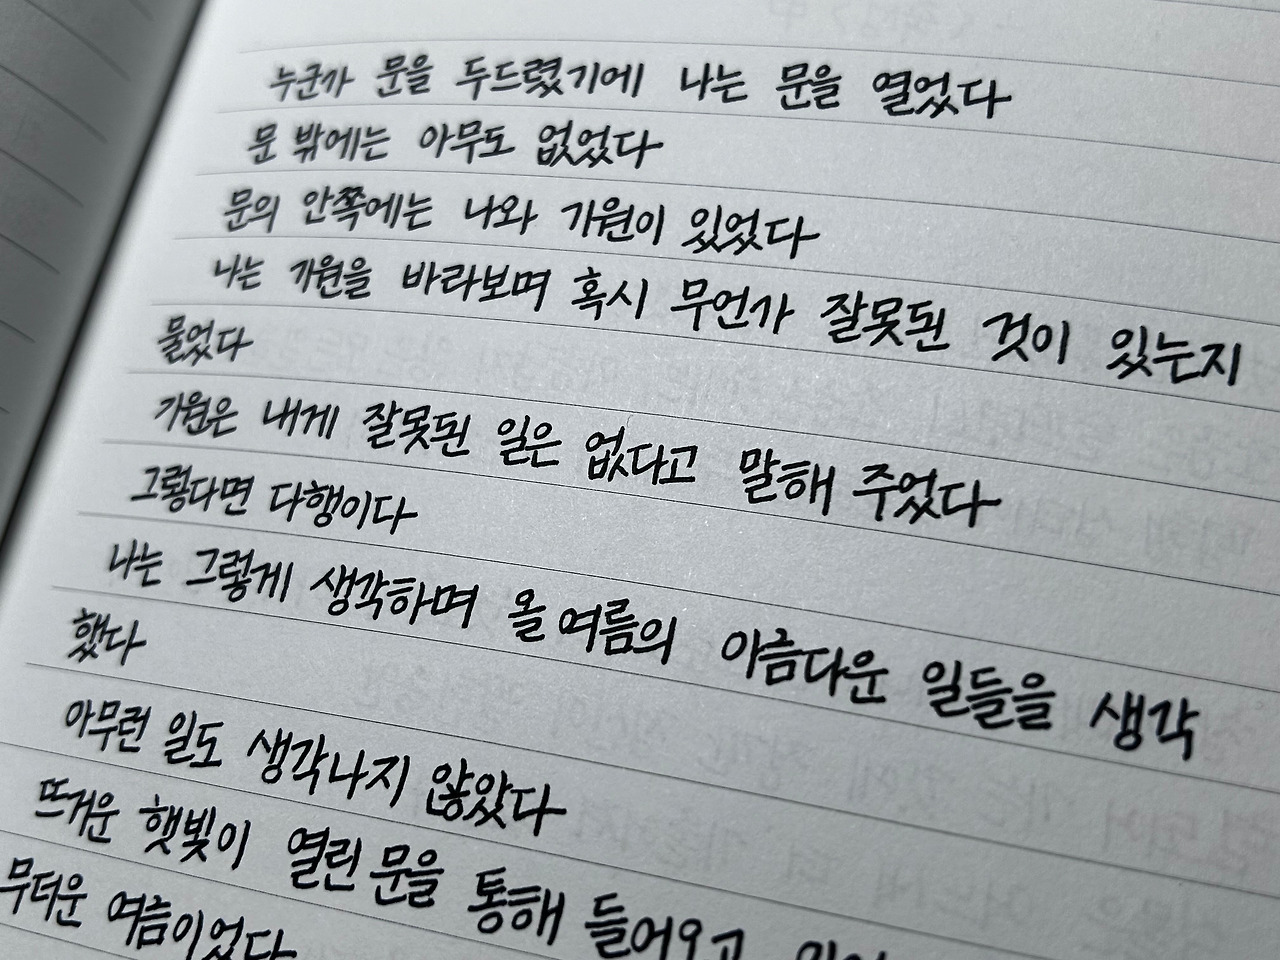 누군가 문을 두드렸기에 나는 문을 열었다
문 밖에는 아무도 없었다
문의 안쪽에는 나와 가원이 있었다
나는 가원을 바라보며 혹시 무언가 잘못된 것이 있는지
물었다
가원은 내게 잘못된 일은 없다고 말해 주었다
그렇다면 다행이다
나는 그렇게 생각하며 올 여름의 아름다운 일들을 생각
했다
아무런 일도 생각나지 않았다
뜨거운 햇빛이 열린 문을 통해 들어오고
무더운 여름이었다